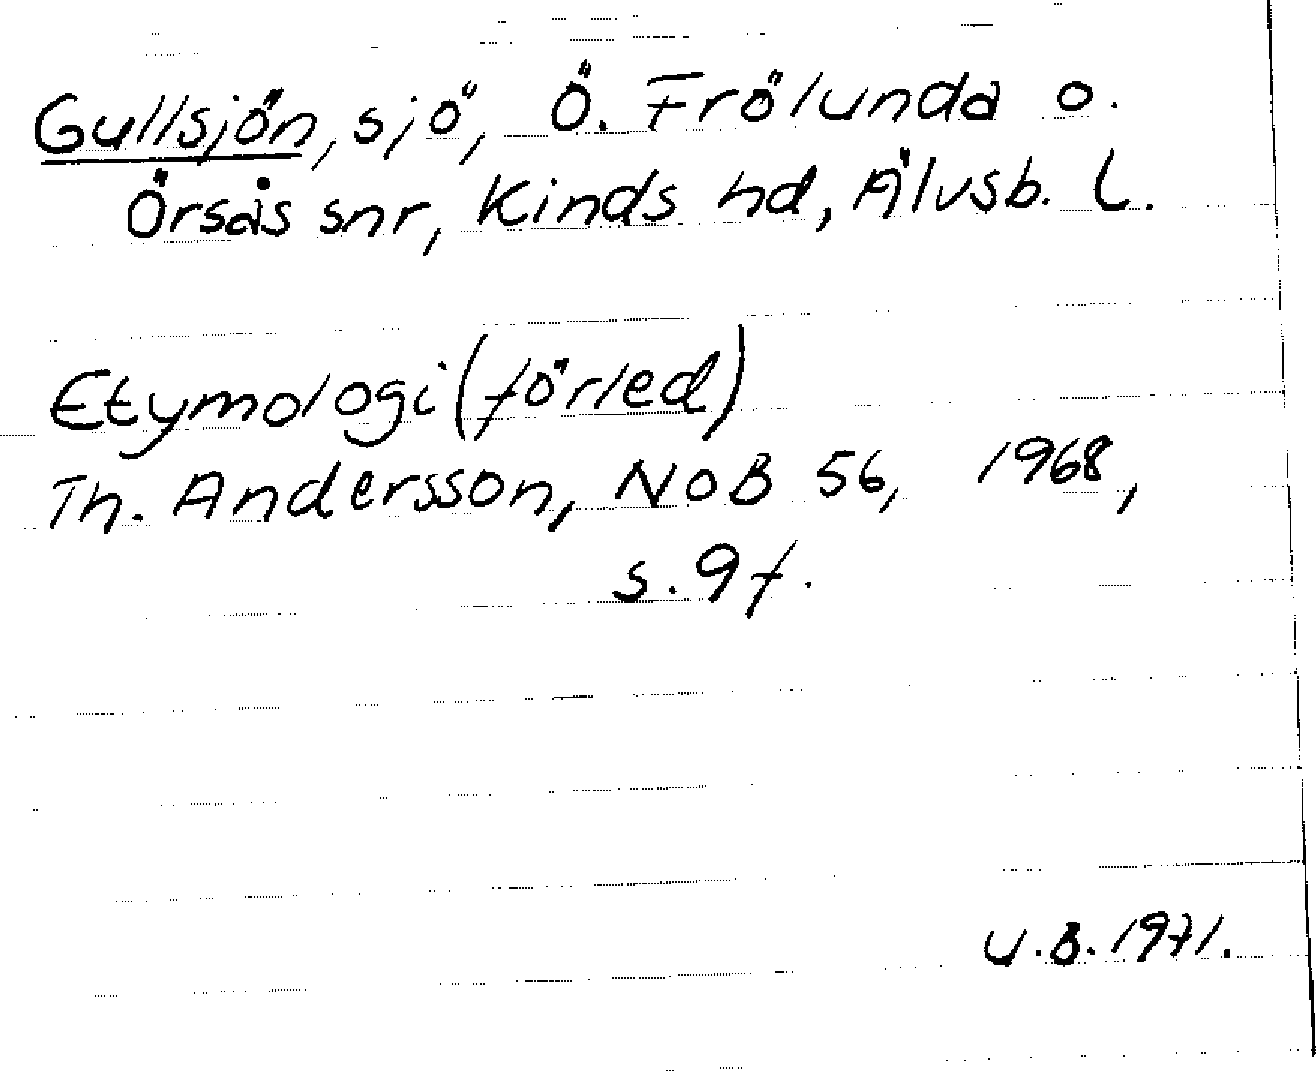 Gullsjön, sjö, Ö. Frölunda o.
Örsås snr, Kinds hd, Älvsb. l.
Etymologi (förled)
Th. Andersson, NoB 56, 1968,
s. 9 f.
U.B. 1971.